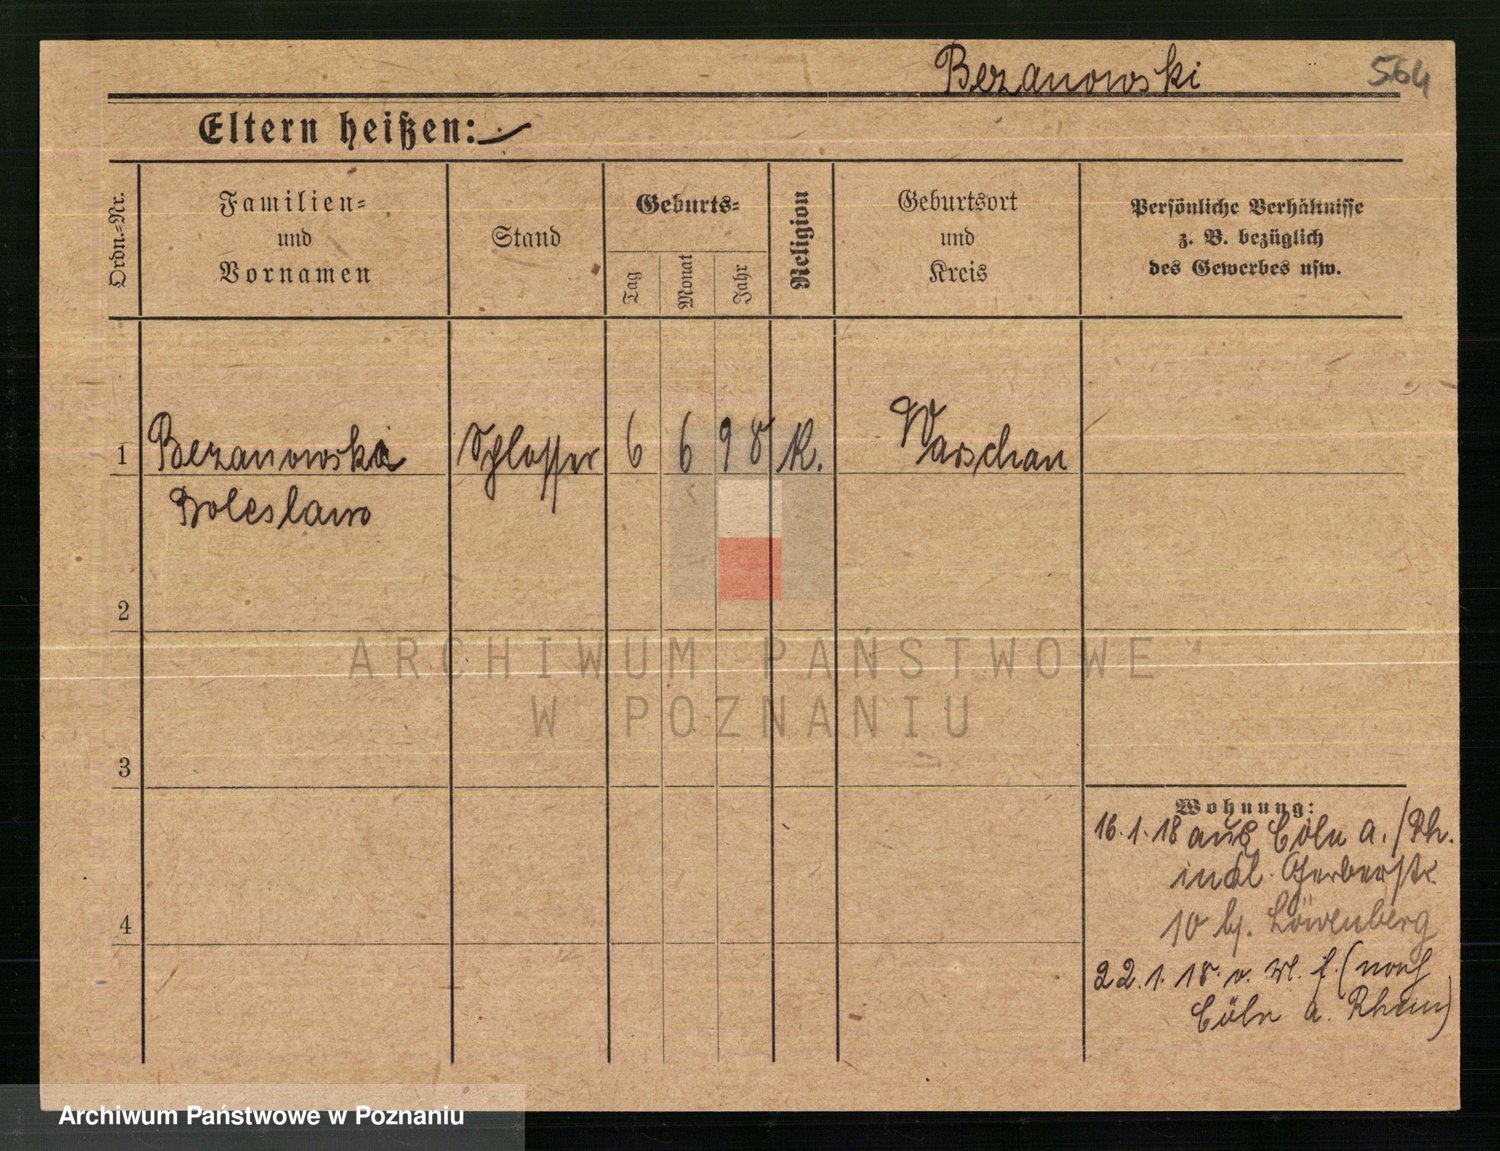 Bezanowski 564
Eltern heißen: —
Ordn.-Nr.
Familien-
und
Vornamen
Stand
Geburts-
Tag
Monat
Jahr
Religion
Geburtsort
und
Kreis
Persönliche Verhältnisse
z. B. bezüglich
des Gewerbes usw.
1 Bezanowski Schlosser 6 6 98 K. Warschau
Boleslaw
2
3
4
Wohnung:
16.1.18 aus Cöln a./Rh.
Gerberstr
10 b. Löwenberg
22.1.18. v. (nach
Cöln a. Rhein)
ARCHIWUM PAŃSTWOWE
W POZNANIU
Archiwum Państwowe w Poznaniu